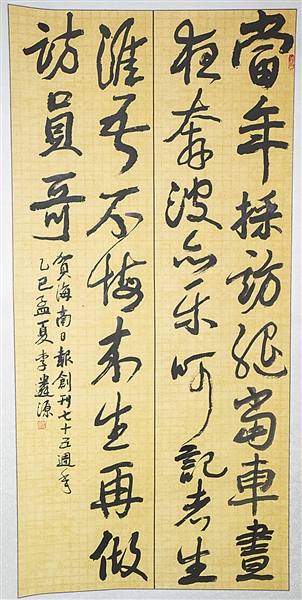 當年採訪腿當車晝
夜奔波亦樂呵記者生
涯吾不悔來生再做
訪員哥
賀海南日報創刊七十五週年
乙巳孟夏李源